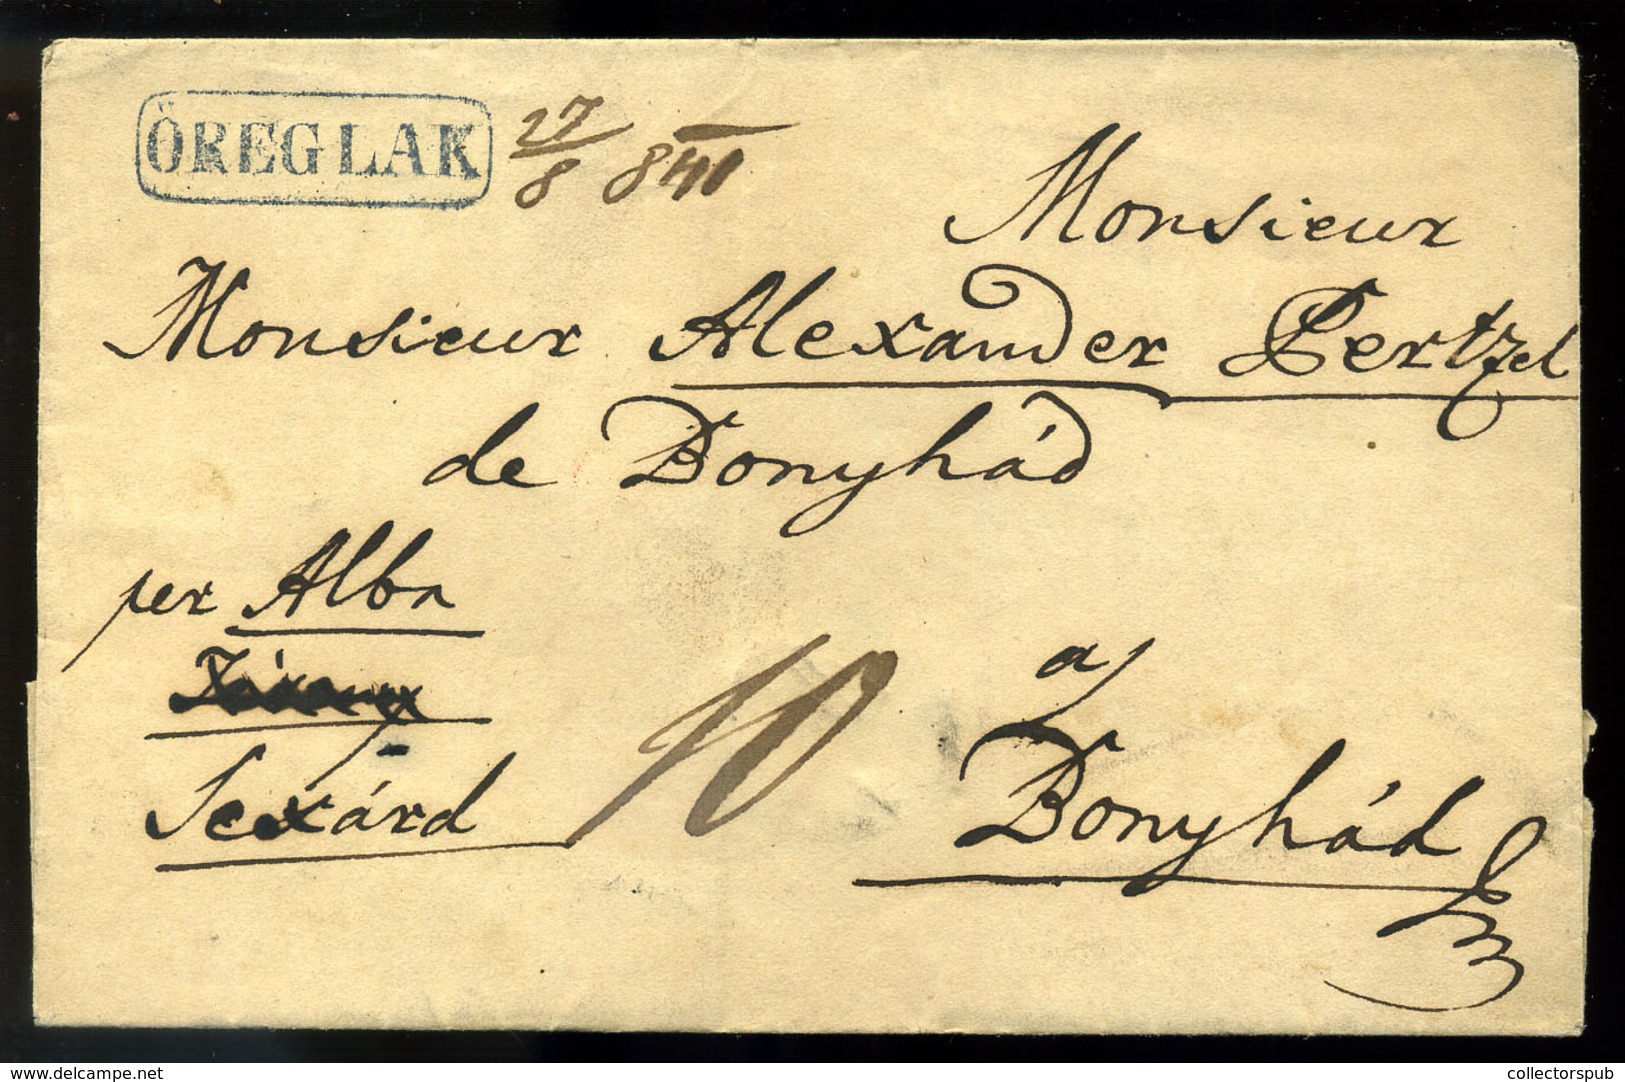 ÖREGLAK 27/8 841
Monsieur
Monsieur Alexander Pertzel
de Bonyhád
per Alba
Sexárd 10
a/
Bonyhád
delcampe.net
collectorspub